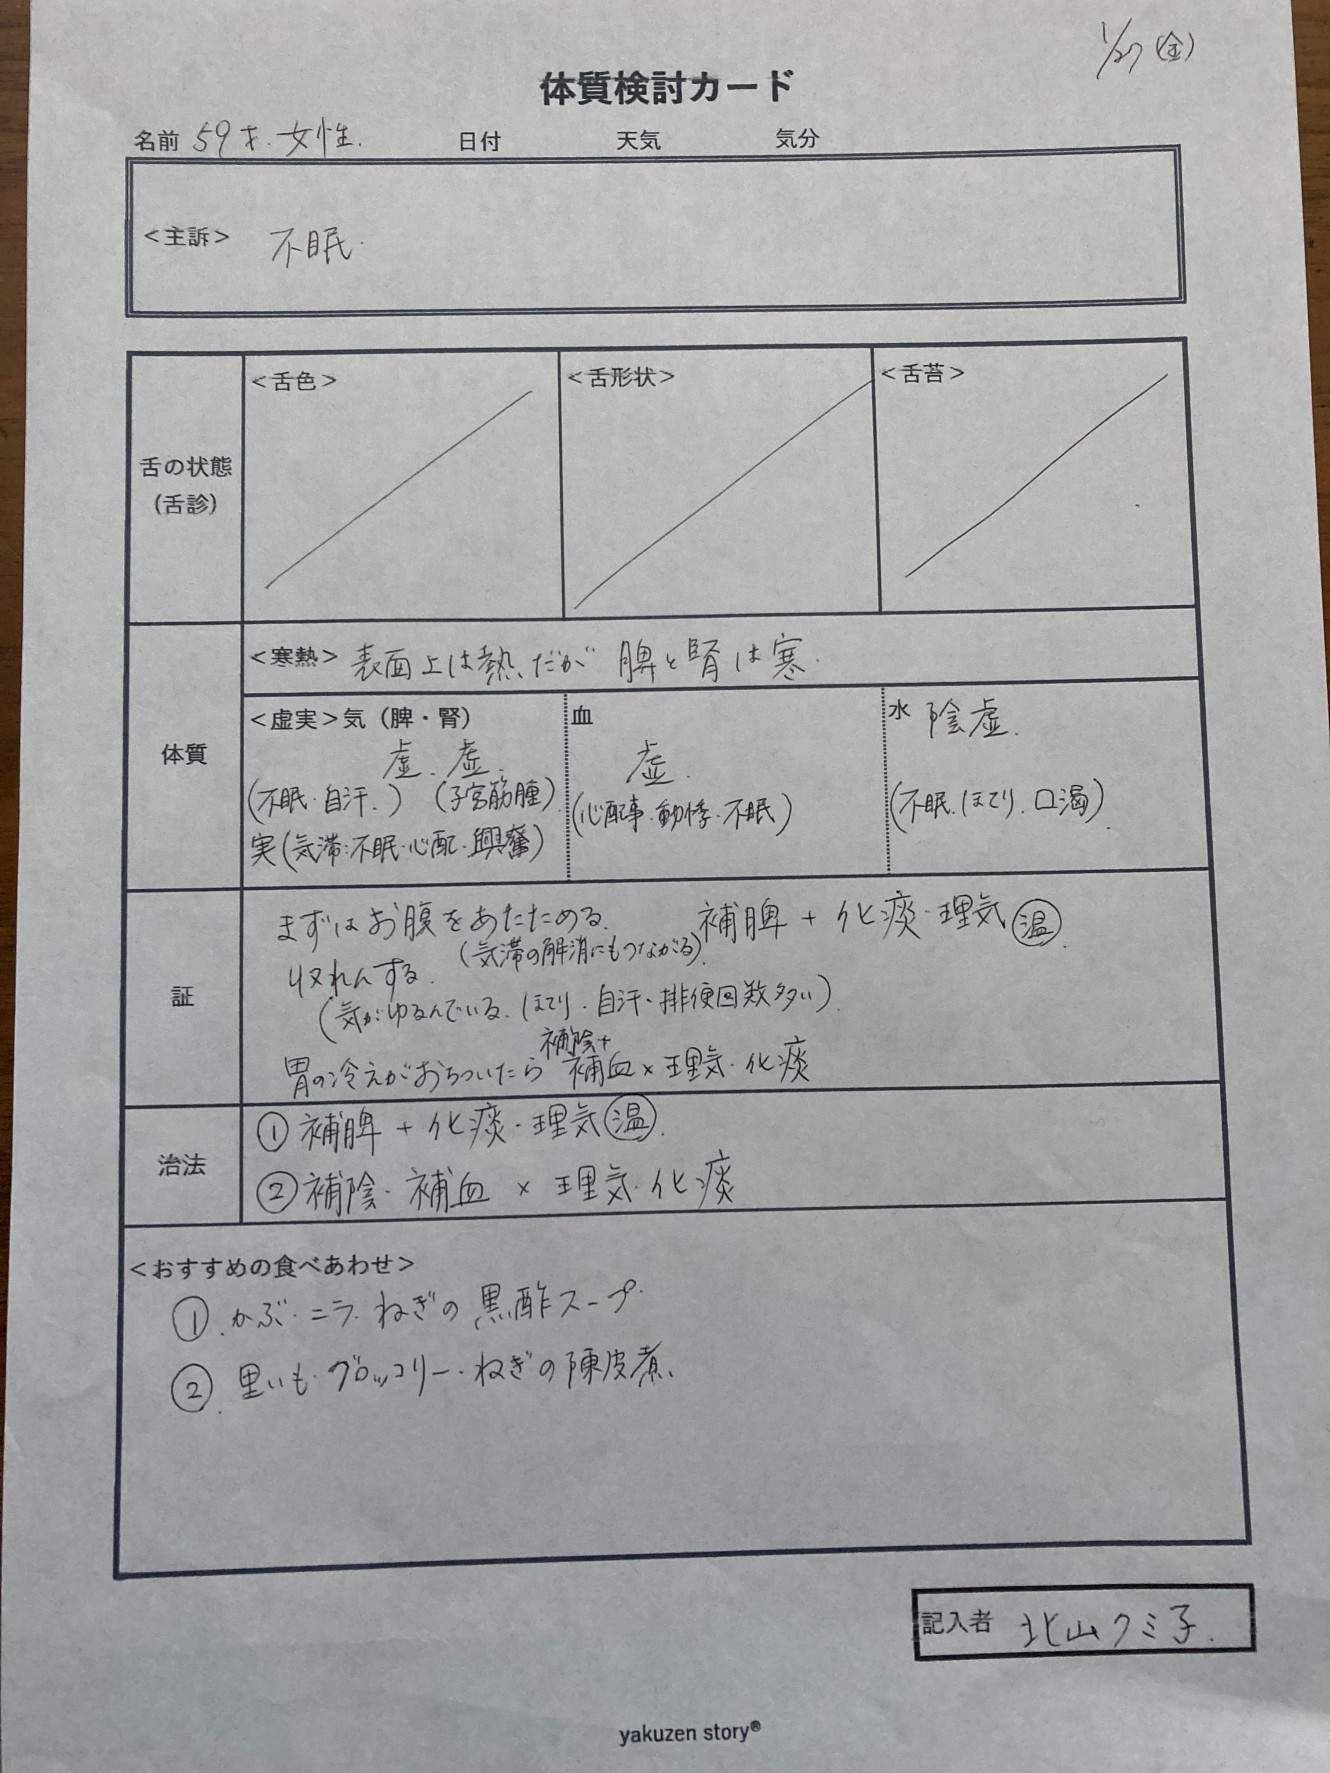 1/27(金)
体質検討カード
名前 59才.女性. 日付 天気 気分
<主訴> 不眠.
舌の状態
(舌診)
<舌色>
<舌形状>
<舌苔>
体質
<寒熱> 表面上は熱.だが 脾と腎は寒.
<虚実>気(脾・腎)
虚.虚.
(不眠.自汗.) (子宮筋腫)
実(気滞:不眠.心配.興奮)
血
虚.
(心配事.動悸.不眠)
水 陰虚.
(不眠.ほてり.口渇).
証
まずはお腹をあたためる. 補脾+化痰.理気(温).
(気滞の解消にもつながる).
収れんする.
(気がゆるんでいる.ほてり.自汗.排便回数多い).
補陰+
胃の冷えがおちついたら 補血×理気.化痰
治法
①補脾+化痰.理気(温).
②補陰.補血×理気.化痰
<おすすめの食べあわせ>
①.かぶ.ニラ.ねぎの黒酢スープ.
②.里いも.ブロッコリー.ねぎの陳皮煮.
記入者 北山クミ子.
yakuzen story®